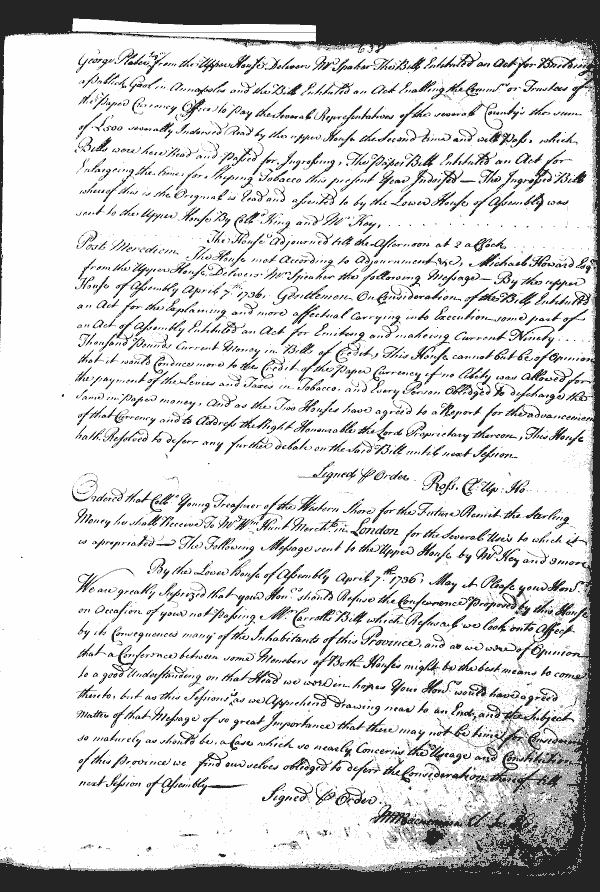 638
George Plater Esqr from the Upper House Delivers Mr Speaker The Bill Entituled an Act for Building
a Publick Gaol in Annapolis and the Bill Entituled an Act Enabling the Comrs or Trustees of
the Paper Currency Office to Pay the Several Representatives of the several Countys the sum
of £500 severally Indorsed Read by the upper House the Second time and will Pass, which
Bills were here Read and Passed for Ingrossing, The Paper Bill Entituled an Act for
Enlarging the time for Shiping Tobacco this present Year Indorsed — The Ingrossed Bill
whereof this is the Original is Read and assented to by the Lower House of Assembly was
sent to the Upper House By Collo King and Mr Key,
The House Adjourned till the Afternoon at 2 aClock
Post Meredien The House met According to Adjournment &c, Michael Howard Esqr
from the Upper House Delivers Mr Speaker the following Message — By the upper
House of Assembly April 7th 1736, Gentlemen On Consideration of the Bill Entituled
an Act for the Explaining and more affectual Carrying into Execution some part of
an Act of Assembly Entituled an Act for Emitting and makeing Current Ninety
Thousand Pounds Current Money in Bills of Credit, This House cannot but be of Opinion
that it would Conduce more to the Credit of the Paper Currency if no Liberty was allowed for
the payment of the Levies and Taxes in Tobacco, and Every Person Obliged to discharge the
same in Paper money, And as the Two Houses have agreed to a Report for the advancement
of that Currency and to Address the Right Honourable the Lord Proprietary thereon, This House
hath Resolved to deferr any further debate on the Said Bill until next Session
Signed P Order Ross. Cl. Up. Ho
Ordered that Collo Young Treasurer of the Western Shore for the Future Remit the Sterling
Money he shall Receive To Mr Wm Hunt Mercht in London for the several Uses to which it
is apropriated — The Following Message sent to the Upper House by Mr Key and 3 more
By the Lower house of Assembly April 7th 1736, May it Please your Honrs
We are greatly Surprized that your Honrs should Refuse the Conference Proposed by this House
on Occasion of your not Passing Mr Carrolls Bill which Refusal we look on to Affect
by its Consequences many of the Inhabitants of this Province, and as we were of Opinion
that a Conferance between some Members of Both Houses might be the best means to come
to a good Understanding on that Head we were in hopes Your Honrs would have agreed
thereto, but as this Sessions is as we Apprehend drawing near to an End, and the Subject
Matter of that Message of so great Importance that there may not be time for Considering
so maturely as should be, a Case which so nearly Concerns the Useage and Constitution
of this Province we find our selves obliged to deferr the Consideration thereof till
next Session of Assembly —
Signed P Order
Cl. Lo. Ho